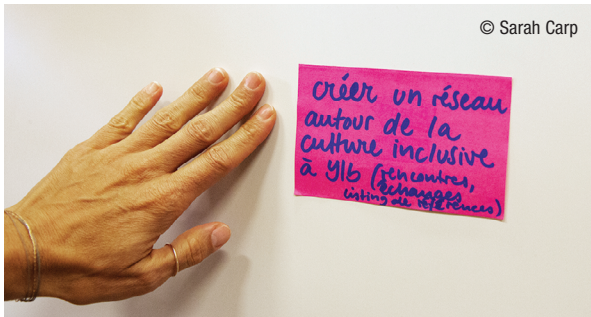 © Sarah Carp
créer un réseau
autour de la
culture inclusive
à Ylb (rencontres,
échanges
listing de références)